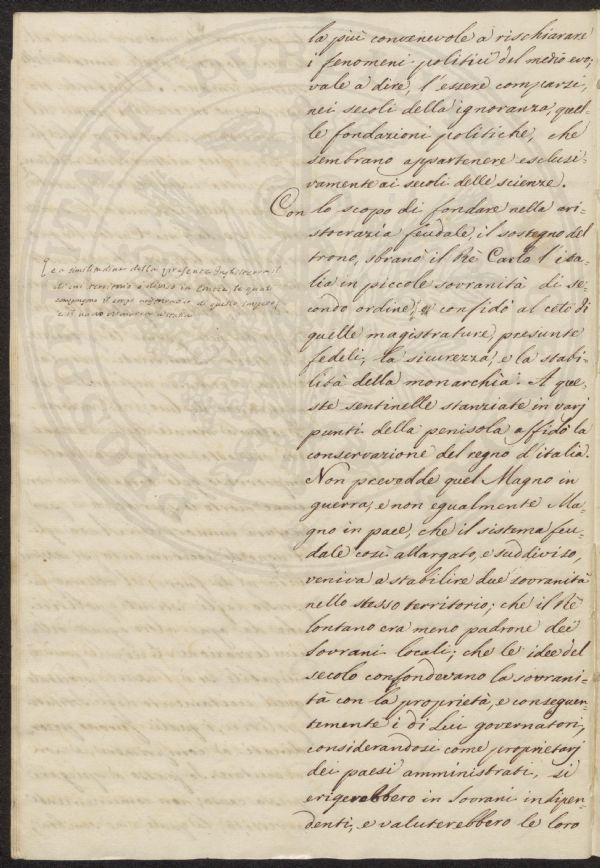 la più convenevole a rischiarare
i fenomeni politici del medio evo;
vale a dire, l'essere comparsi,
nei secoli della ignoranza, quel-
le fondazioni politiche, che
sembrano appartenere esclusi-
vamente ai secoli delle scienze.
Con lo scopo di fondare nella ari-
stocrazia feudale, il sostegno del
trono, sbranò il Rè Carlo l'ita-
lia in piccole sovranità di se-
condo ordine, e confidò al ceto di
quelle magistrature, presunte
fedeli, la sicurezza, e la stabi-
lità della monarchia. A que-
ste sentinelle stanziate in varj
punti della penisola affidò la
conservazione del regno d'italia.
Non prevedde quel Magno in
guerra, e non egualmente Ma-
gno in pace, che il sistema feu-
dale così allargato, e suddiviso,
veniva a stabilire due sovranità
nello stesso territorio; che il Rè
lontano era meno padrone dei
Sovrani locali; che le idee del
secolo confondevano la sovrani-
tà con la proprietà, e conseguen-
temente i di Lui governatori,
considerandosi come proprietarj
dei paesi amministrati, si
erigerebbero in Sovrani indipen-
denti, e valuterebbero le loro
e a similitudine della presente Inghilterra il
di cui è diviso in Contee, le quali
compongono il corpo di quello impero,